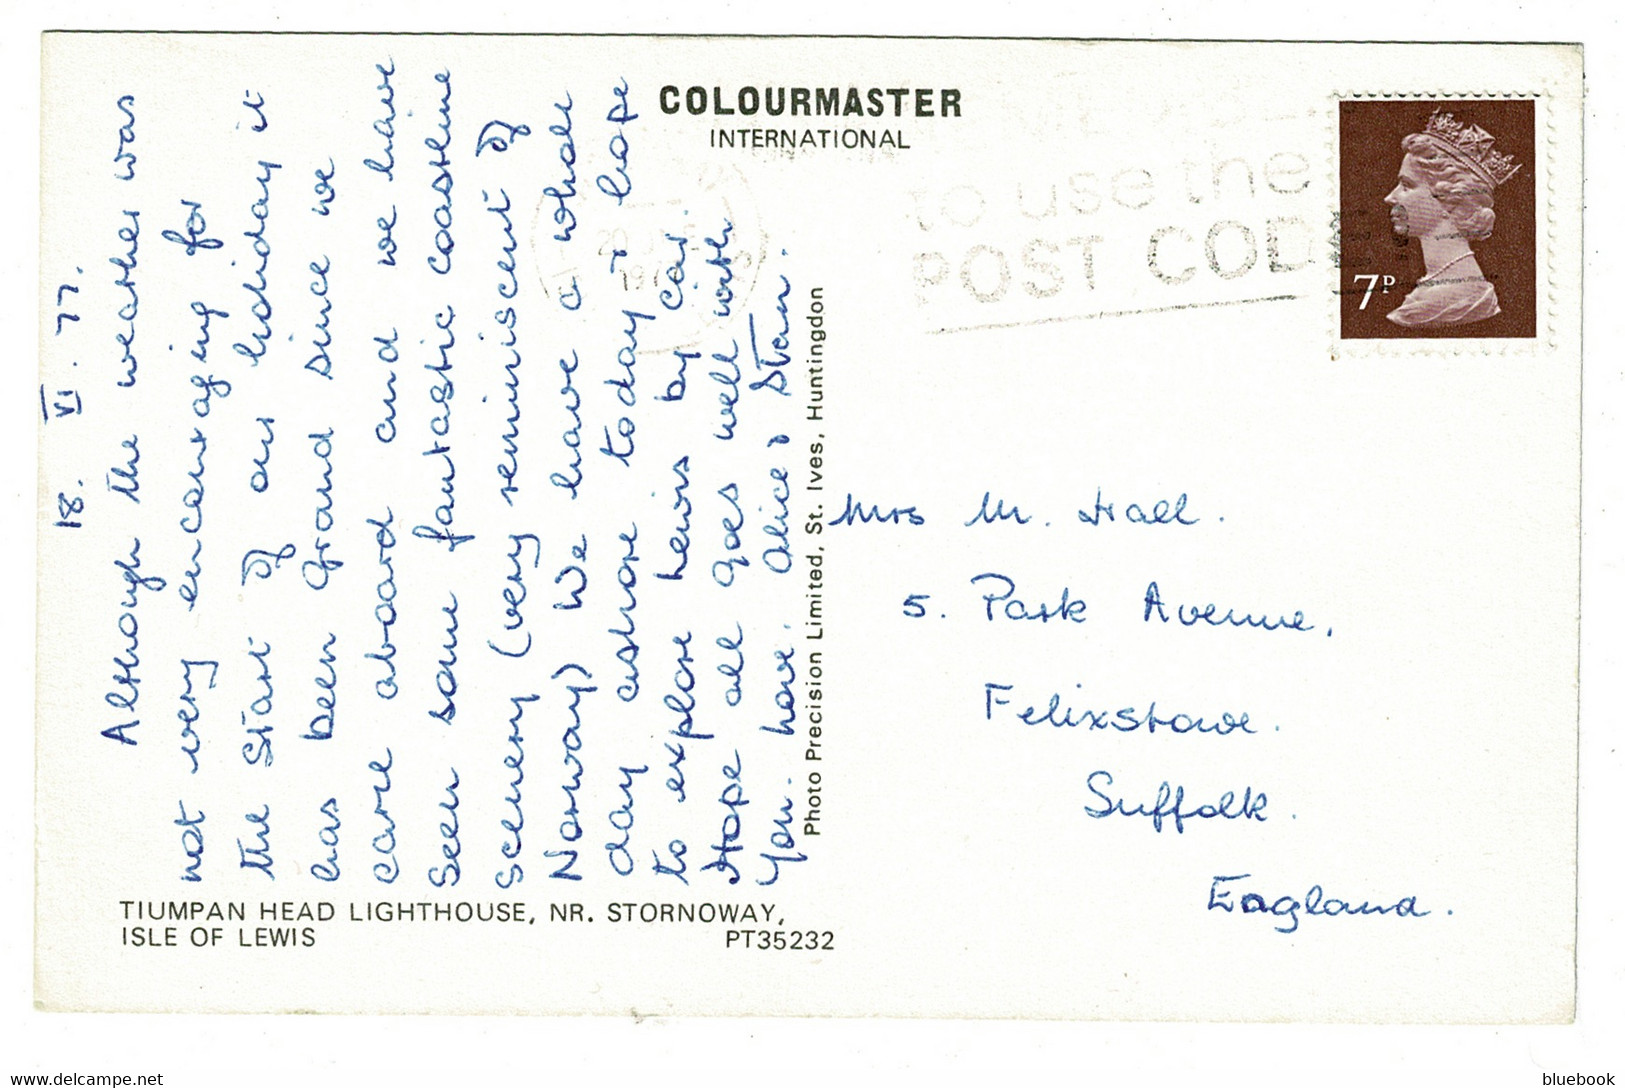 COLOURMASTER
INTERNATIONAL
to use the
POST CODE
7P
18. VI. 77.
Although the weather was
not very encouraging for
the start of our holiday it
has been grand since we
came aboard and we have
seen some fantastic coastline
scenery (very reminiscent of
Norway) We have a whole
day ashore today & hope
to explore Lewis by car.
Hope all goes well with
you. Love. Alice & Stan.
Photo Precision Limited, St. Ives, Huntingdon
Mrs M. Hall.
5. Park Avenue,
Felixstowe.
Suffolk.
England.
TIUMPAN HEAD LIGHTHOUSE, NR. STORNOWAY,
ISLE OF LEWIS
PT35232
delcampe.net
bluebook